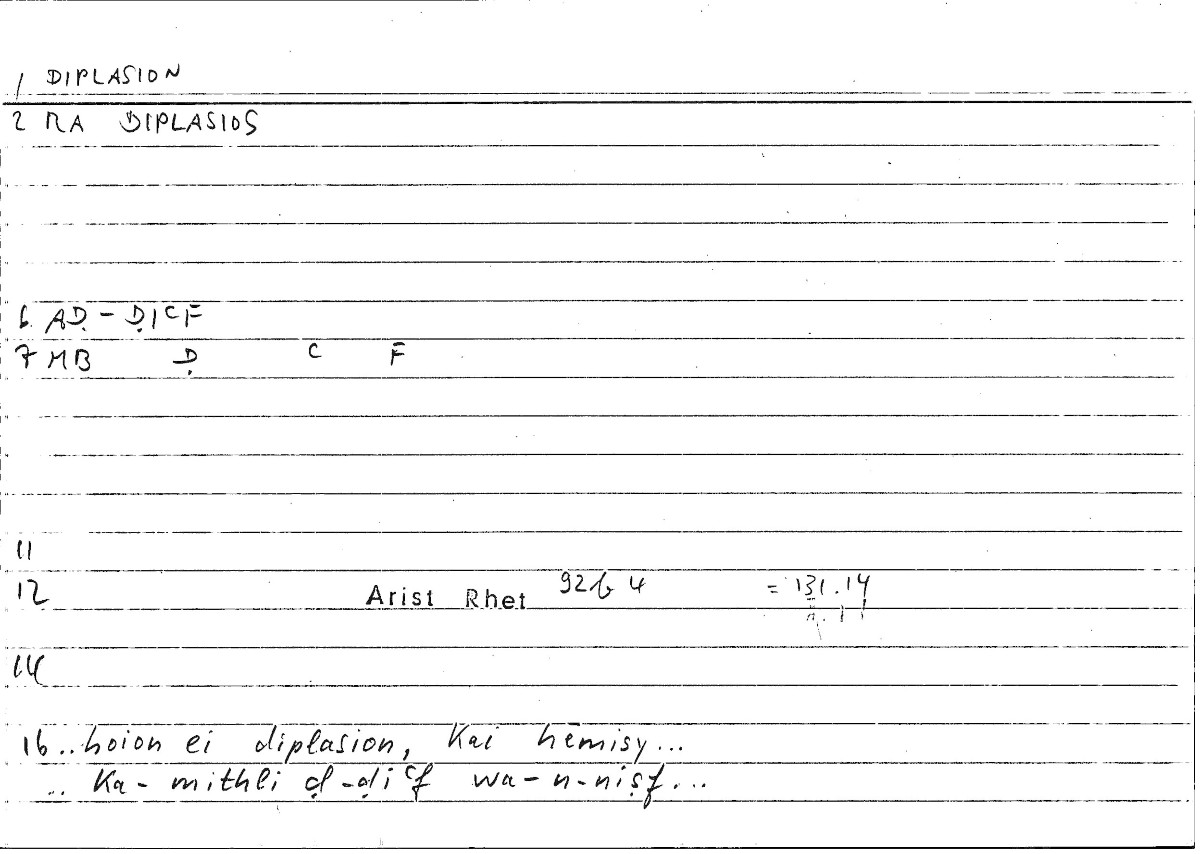 1 DIPLASION
2 RA DIPLASIOS
6. AḌ-ḌIᶜF
7 MB Ḍ ᶜ F
11
12 Arist Rhet 92b 4 = 131.14
14
16 ..hoion ei diplasion, kai hēmisy...
.. Ka-mithli ḍ-ḍiᶜf wa-n-niṣf...